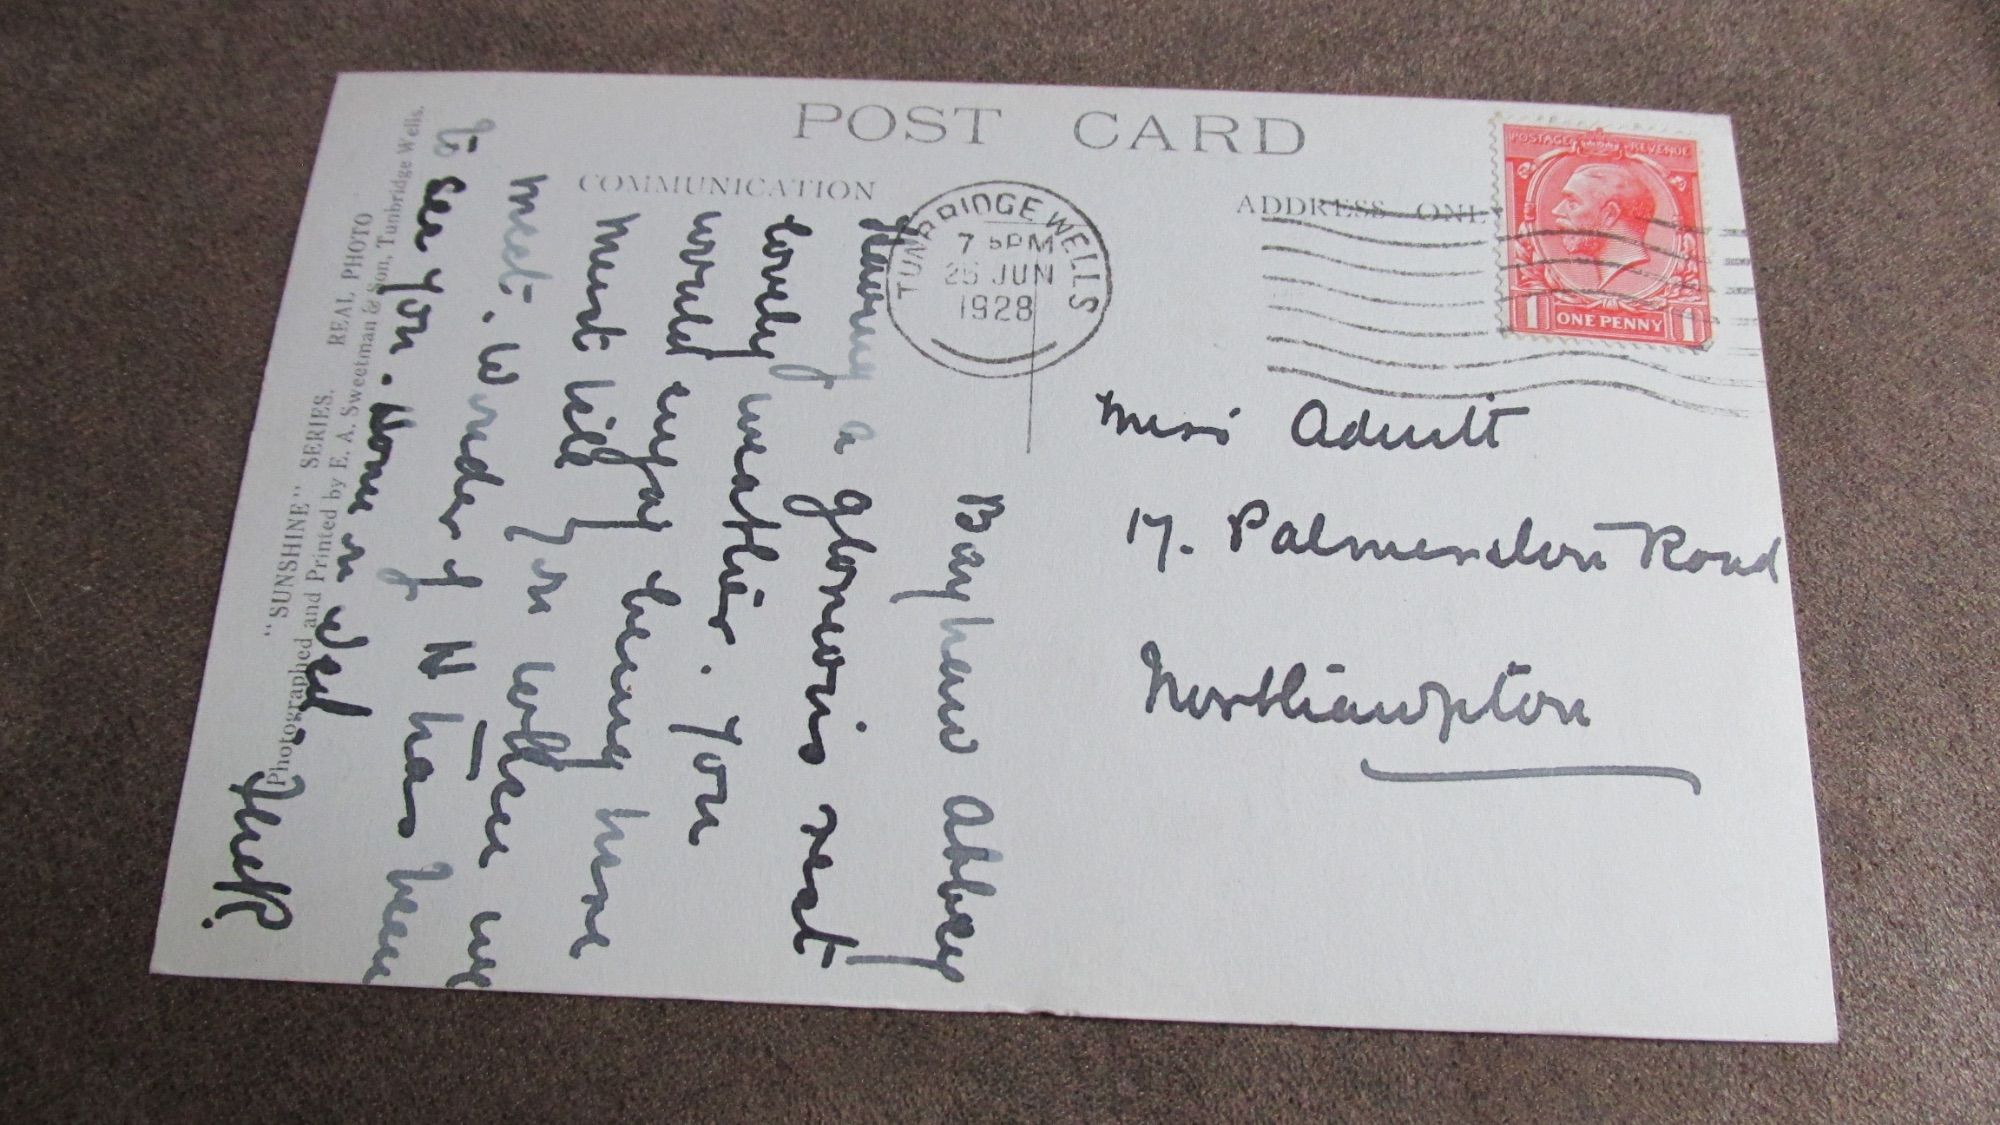 POST CARD
COMMUNICATION
ADDRESS ONLY
POSTAGE REVENUE
1 ONE PENNY 1
TUNBRIDGE WELLS
7 PM
JUN
1928
Miss Adnitt
17. Palmerston Road
Northampton
Bayham Abbey
Having a glorious rest
lovely weather. You
would enjoy being here
Must tell you when we
meet. Wonder if N has been
to see you. Home on Wed.
"SUNSHINE" SERIES. REAL PHOTO
Photographed and Printed by E. A. Sweetman & Son, Tunbridge Wells.